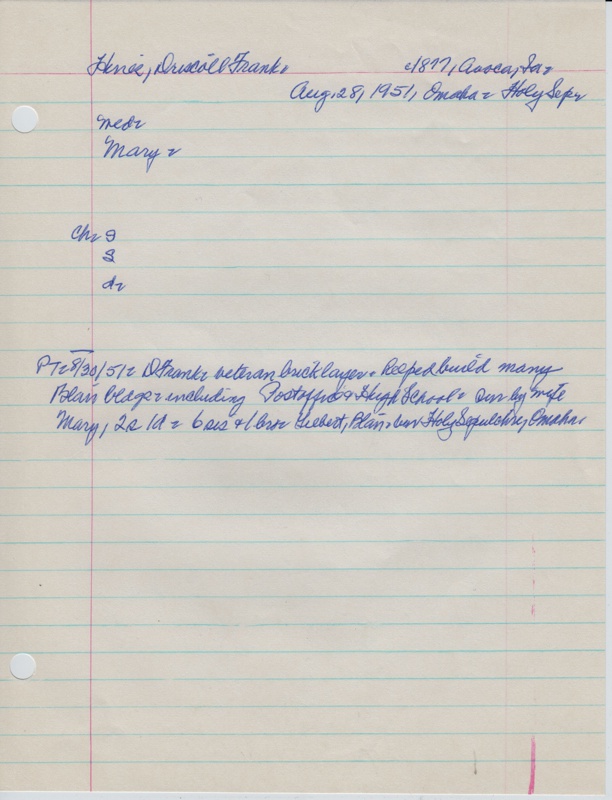 Driscoll Frank- c1877, Avoca, Ia-
Aug. 28, 1951, Omaha- Holy Sep-
med-
Mary-
Ch- s
s
d-
PT-8/30/51- D Frank- veteran bricklayer- helped build many
Blair bldgs- including Postoffice & High School- sur by wife
Mary, 2s 1d- 6 sis & 1 bro- Blair- bur Holy Sepulchre, Omaha-